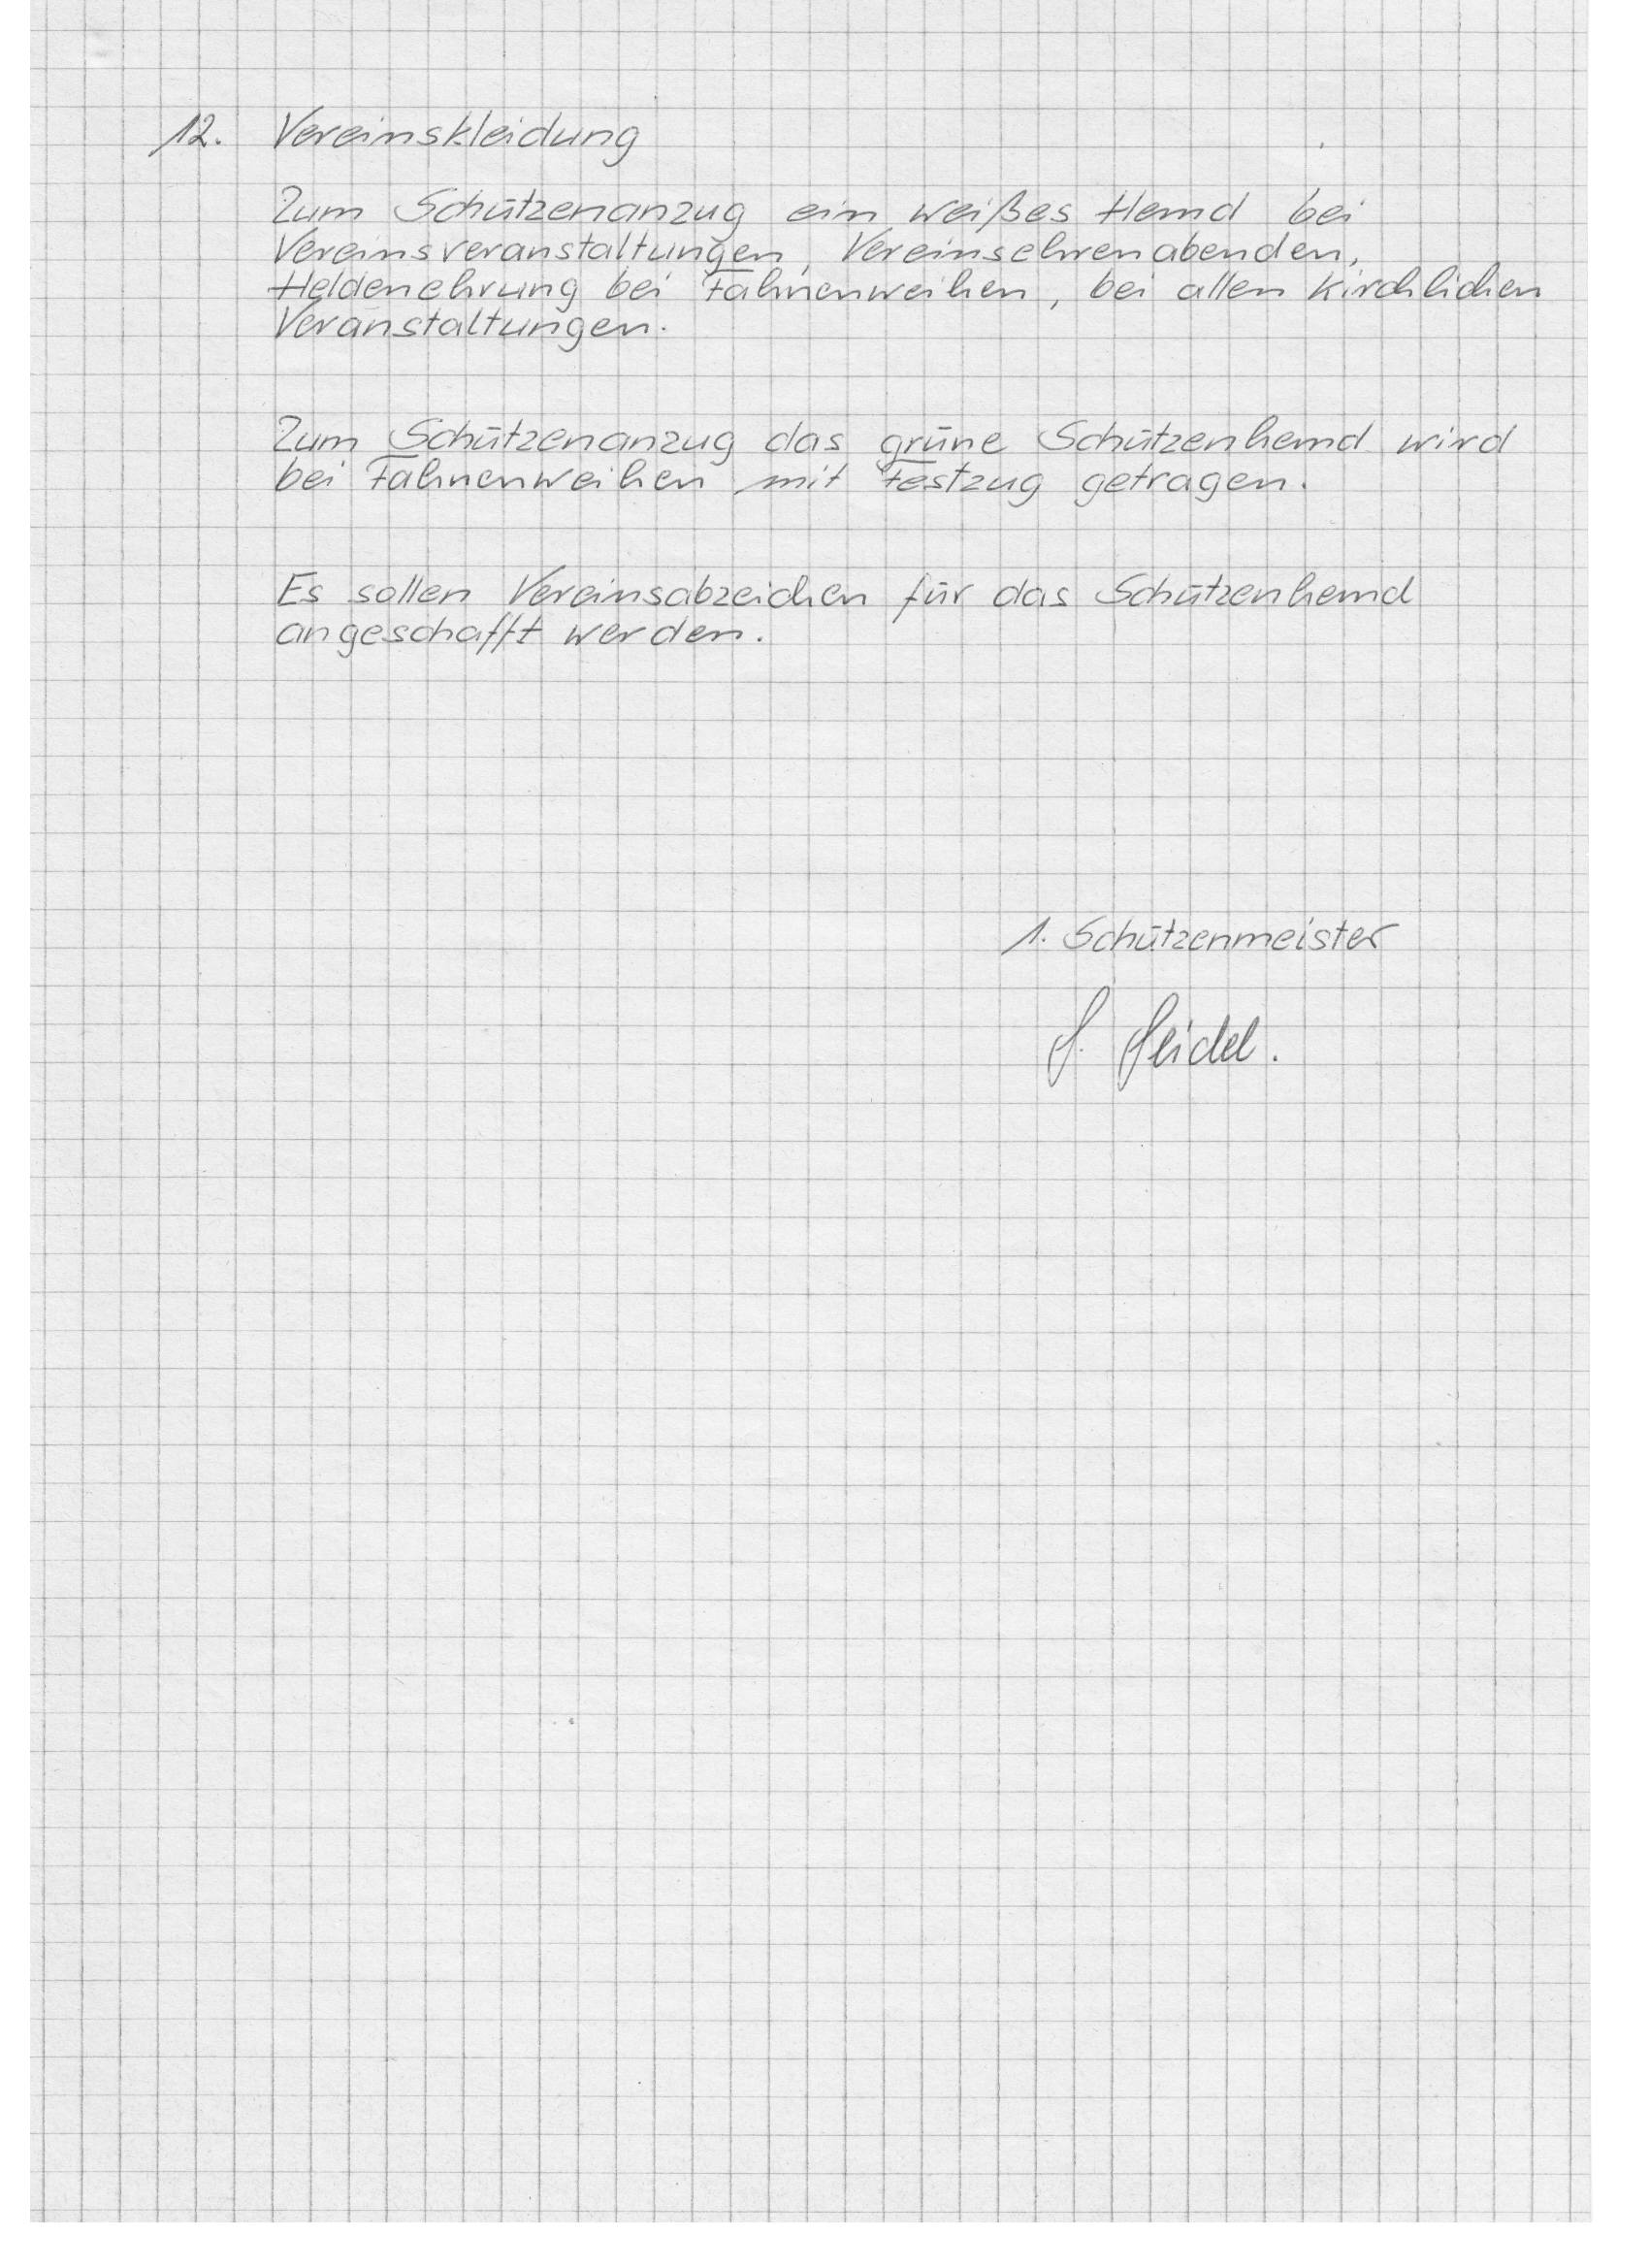 12. Vereinskleidung
Zum Schützenanzug ein weißes Hemd bei
Vereinsveranstaltungen, Vereinsehrenabenden,
Heldenehrung bei Fahnenweihen, bei allen kirchlichen
Veranstaltungen.
Zum Schützenanzug das grüne Schützenhemd wird
bei Fahnenweihen mit Festzug getragen.
Es sollen Vereinsabzeichen für das Schützenhemd
angeschafft werden.
1. Schützenmeister
S. Seidel.